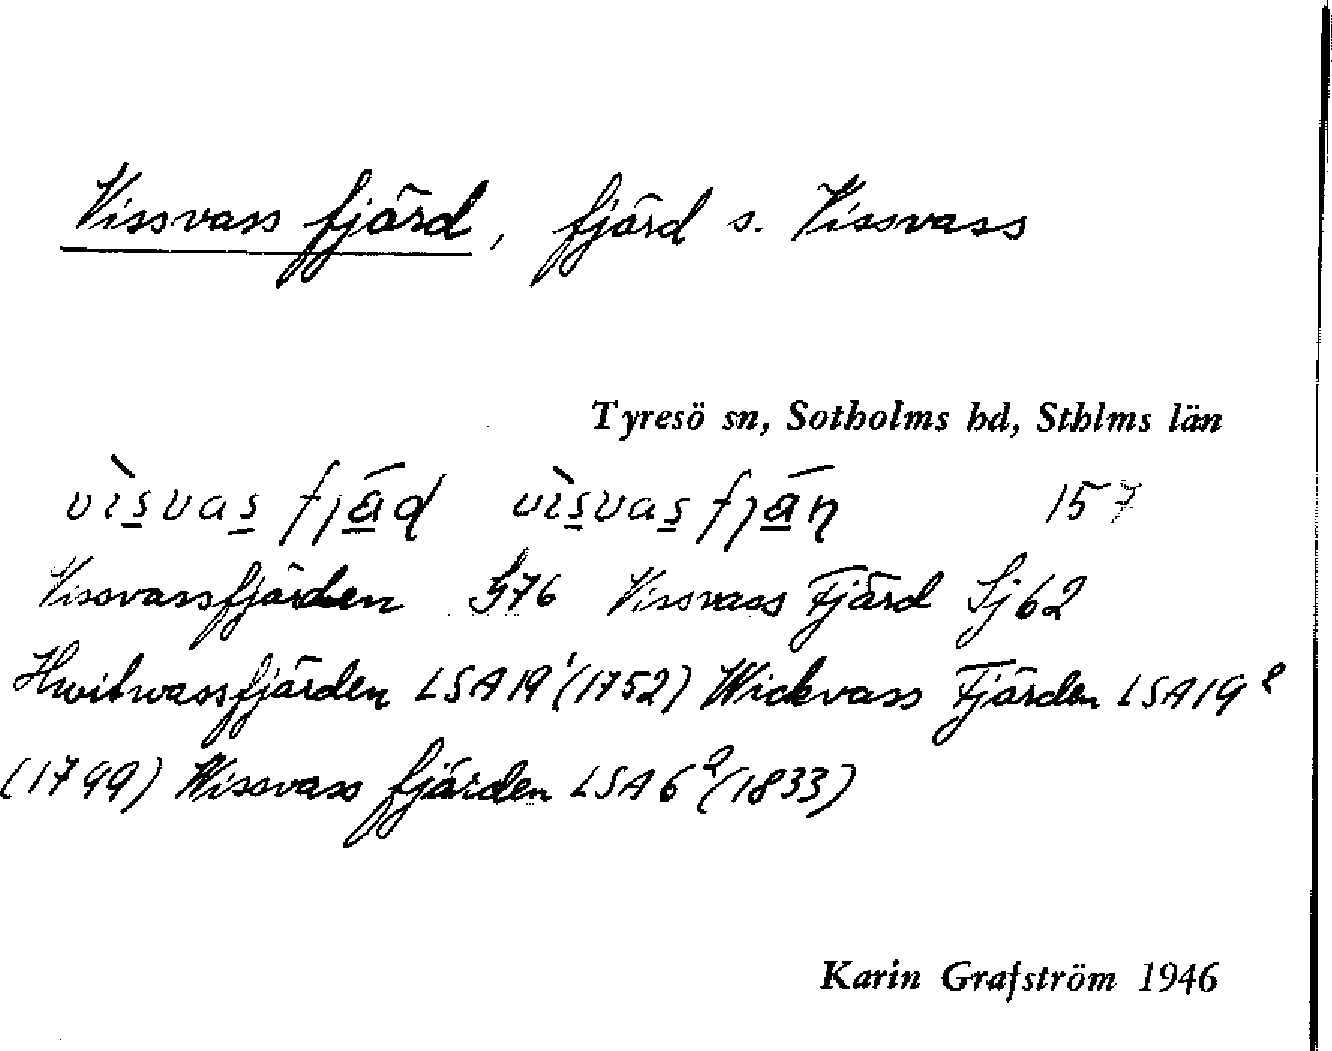 Vissvass fjärd, fjärd s. Vissvass
Tyresö sn, Sotholms hd, Sthlms län
vìsvas fjäɖ vìsvas fjäɳ 157
Vissvassfjärden G76 Vissvass Fjärd Sj 62
Hwitwassfjärden LSA19¹(1752) Wickvass Fjärden LSA19²
(1799) Wissvass fjärden LSA6²(1833)
Karin Grafström 1946